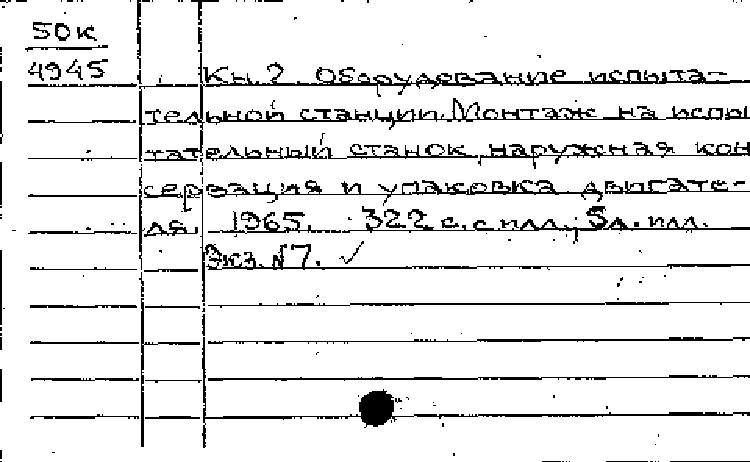 50к
4945
Кн. 2. Оборудование испыта-
тельной станции. Монтаж на испы
тательный станок, наружная кон
сервация и упаковка двигате-
ля. 1965. 322 с. с илл.; 5 л. илл.
Экз. №7. ✓